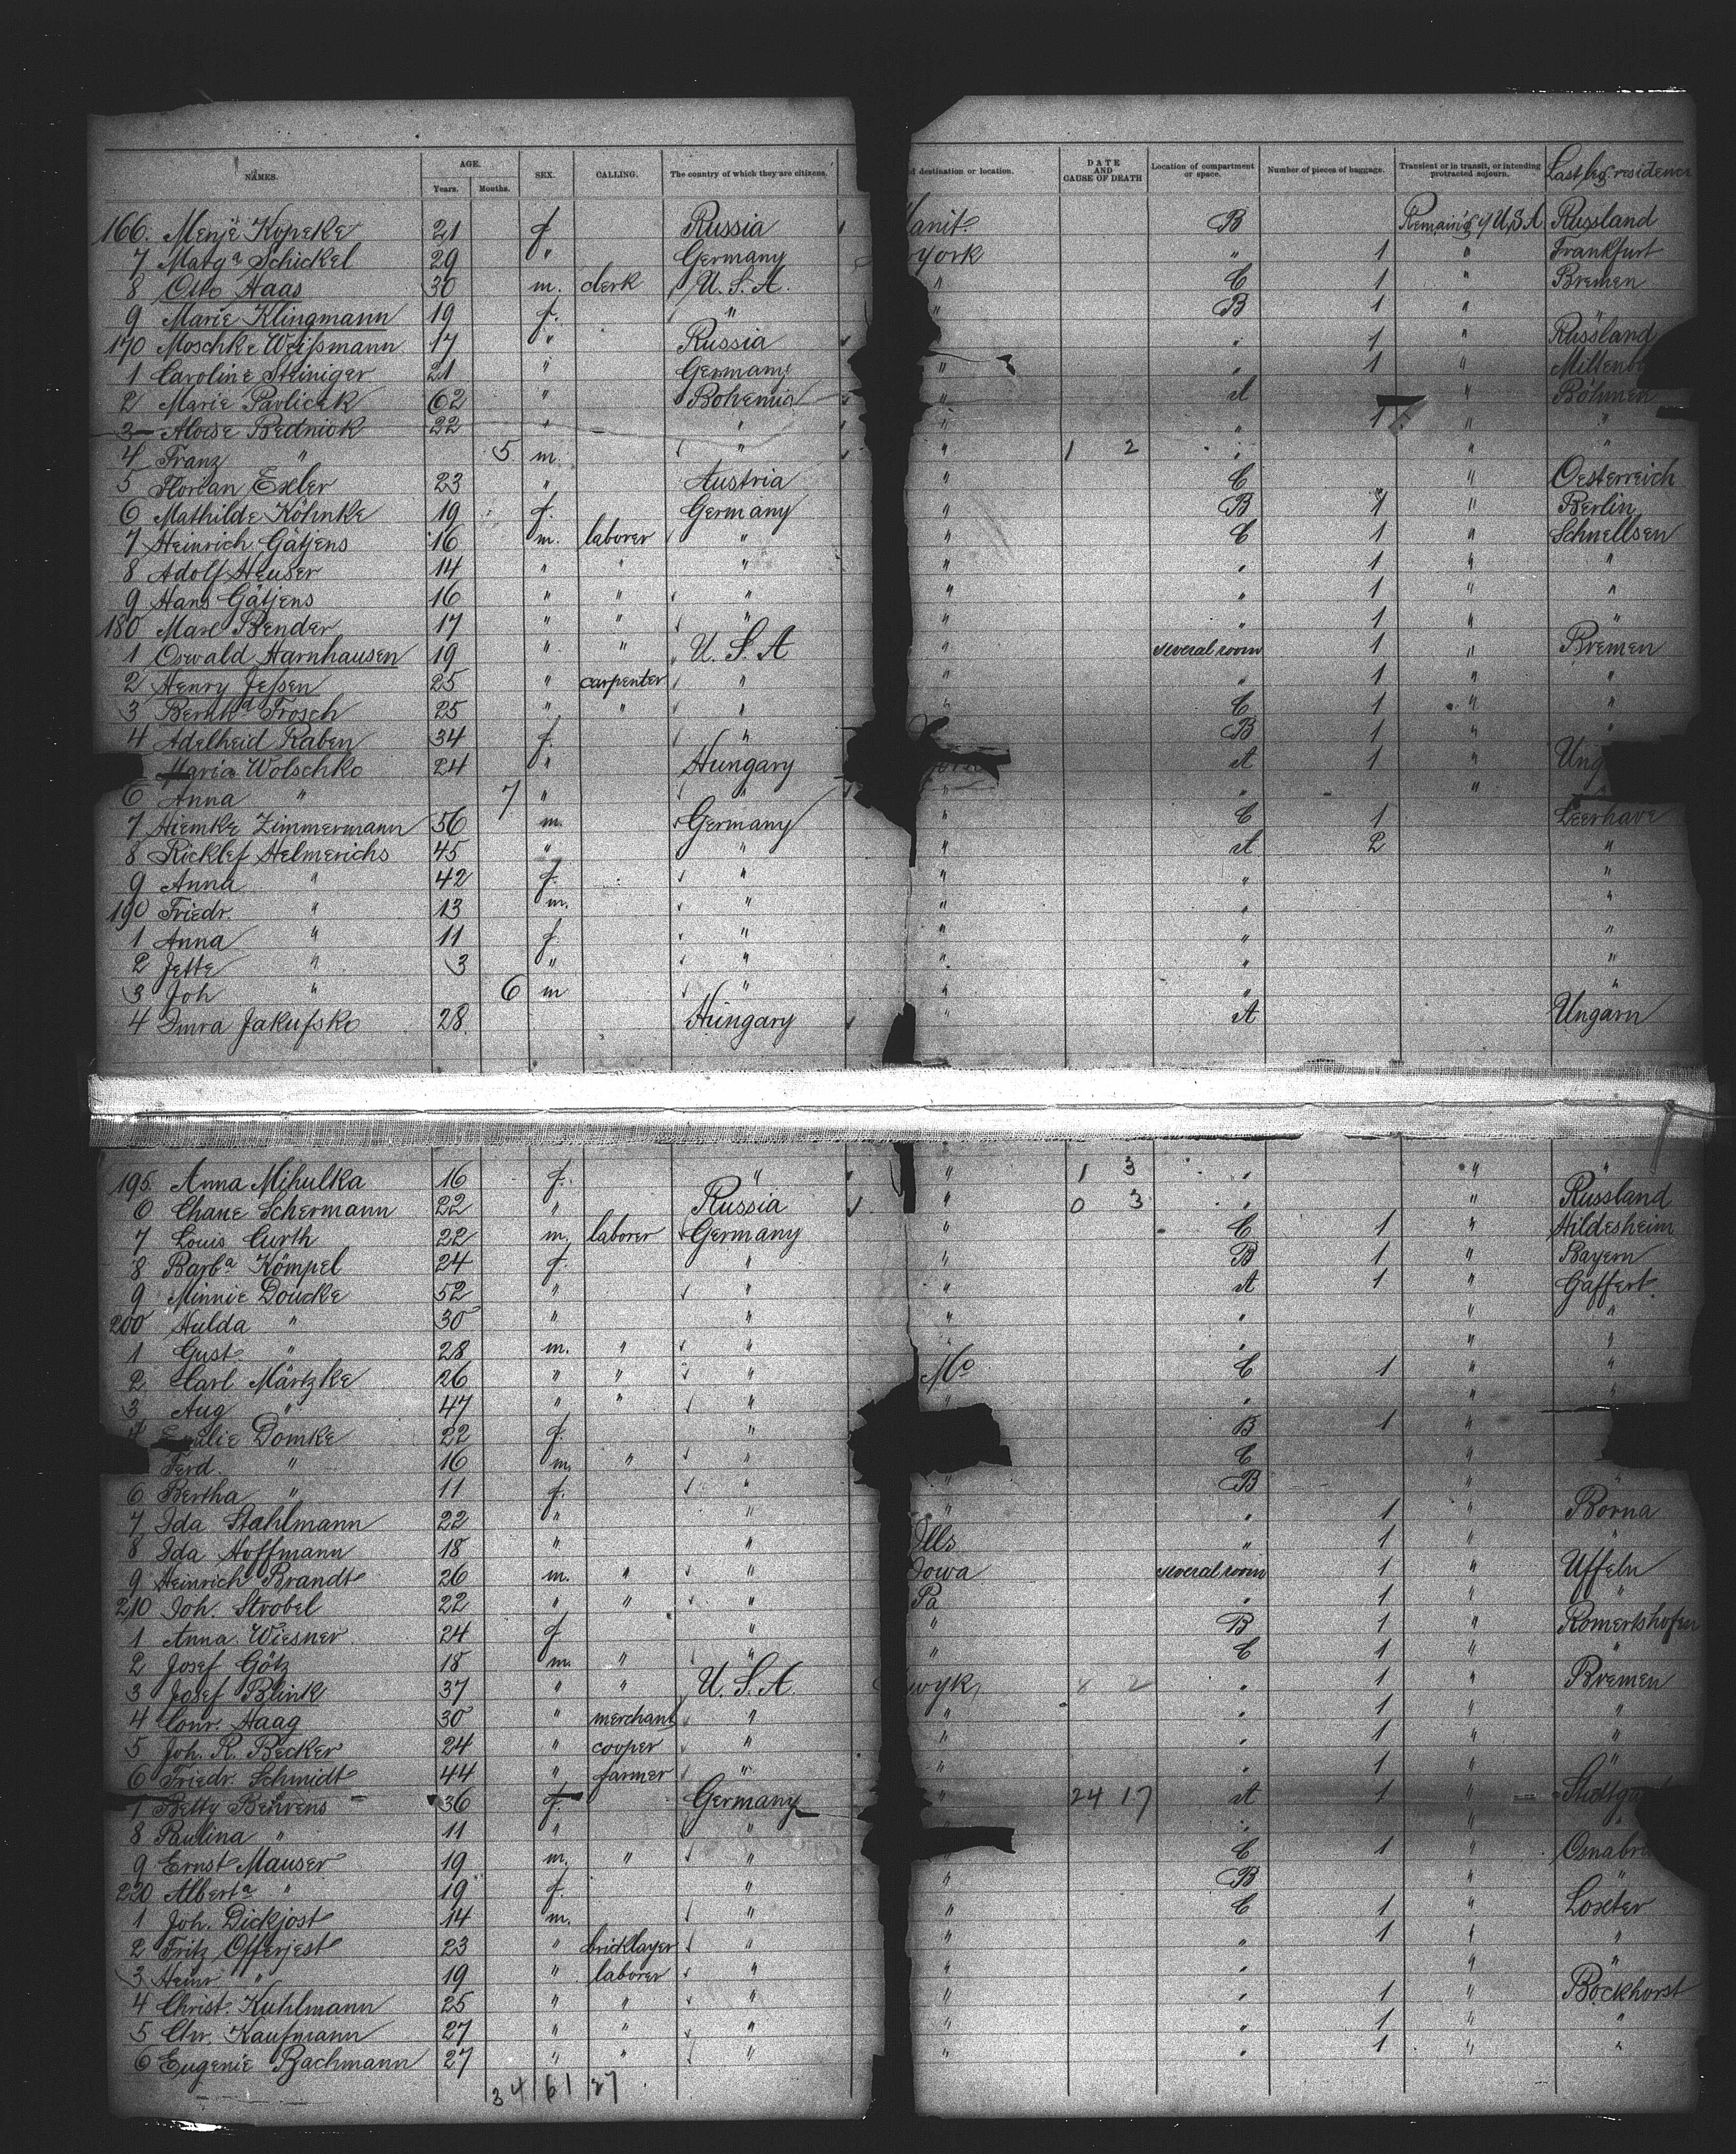 NAMES. AGE. Years. Months. SEX. CALLING. The country of which they are citizens. d destination or location. DATE AND CAUSE OF DEATH Location of compartment or space. Number of pieces of baggage. Transient or in transit, or intending protracted sojourn. Last residence
166. Menje Kopeke 21 f Russia anit. B Remain'g of U.S.A. Russland
7 Marga Schickel 29 " Germany york " 1 " Frankfurt
8 Otto Haas 30 m. clerk U.S.A. " C 1 " Bremen
9 Marie Klingmann 19 f. " " B 1 " "
170 Moschke Weißmann 17 " Russia " 1 " Russland
1 Caroline Steiniger 21 " Germany " " 1 " Miltenb
2 Marie Pavlicek 62 " Bohemia " A " Böhmen
3 Aloise Bednick 22 " " " " 1 " "
4 Franz " 5 m. " " 1 2 " " "
5 Florian Exler 23 " Austria " C " Oesterreich
6 Mathilde Köhnke 19 f. Germany " B 1 " Berlin
7 Heinrich Gätjens 16 m. laborer " " C 1 " Schnellsen
8 Adolf Heuser 14 " " " " " 1 " "
9 Hans Gätjens 16 " " " " " 1 " "
180 Marl Bender 17 " " " " " 1 " "
1 Oswald Harnhausen 19 " " U.S.A " several room 1 " Bremen
2 Henry Jeßen 25 " carpenter " " " 1 " "
3 Bernhd Frosch 25 " " " " C 1 " "
4 Adelheid Raben 34 f. " B 1 " "
Maria Wolschko 24 " Hungary A 1 " Ung
6 Anna " 7 " " " " "
7 Hiemke Zimmermann 56 m. Germany " C 1 Leerhave
8 Ricklef Helmerichs 45 " " " A 2 "
9 Anna " 42 f. " " " "
190 Friedr. " 13 m. " " " "
1 Anna " 11 f. " " " "
2 Jette " 3 " " " " "
3 Joh " 6 m " " " "
4 Imra Jakufsko 28 Hungary " A Ungarn
195. Anna Mihulka 16 f. " " 1 3 " " "
6 Chane Schermann 22 " Russia " 0 3 " " Russland
7 Louis Curth 22 m. laborer Germany " C 1 " Hildesheim
8 Barba Kömpel 24 f. " " B 1 " Bayern
9 Minnie Doucke 52 " " " A 1 " Gaffert.
200 Hulda " 30 " " " " " "
1 Gust. " 28 m. " " " " " "
2 Carl Märtzke 26 " " " Mo C 1 " "
3 Aug " 47 " " " " " " "
4 Emilie Domke 22 f. " B 1 "
Ferd. " 16 m. " " C "
6 Bertha " 11 f. " " B " "
7 Ida Stahlmann 22 " " " " 1 " Borna
8 Ida Hoffmann 18 " " Ills " 1 " "
9 Heinrich Brandt 26 m. " " Iowa several room 1 " Uffeln
210 Joh. Strobel 22 " " " Pa " 1 " "
1 Anna Wiesner 24 f " " B 1 " Romertshofen
2 Josef Götz 18 m. " " " C 1 " "
3 Josef Blink 37 " " U.S.A. wyk, 4 2 " 1 " Bremen
4 Conr. Haag 30 " merchant " " " 1 " "
5 Joh. R. Becker 24 " cooper " " " 1 " "
6 Friedr. Schmidt 44 " farmer " " " 1 " "
7 Betty Behrens 36 f. Germany " 24 17 A 1 "
8 Paulina " 11 " " " "
9 Ernst Mauser 19 m. " " " C 1 " Osnabrü
220 Alberta " 19 f. " " B " "
1 Joh. Dickjost 14 m. " " C 1 " Loxter
2 Fritz Offerjost 23 " bricklayer " " " 1 " "
3 Heinr " 19 " laborer " " " " "
4 Christ. Kuhlmann 25 " " " " " 1 " Bockhorst
5 Chr. Kaufmann 27 " " " " " 1 " "
6 Eugenie Bachmann 27 " " " " " 1 " "
34 61 27